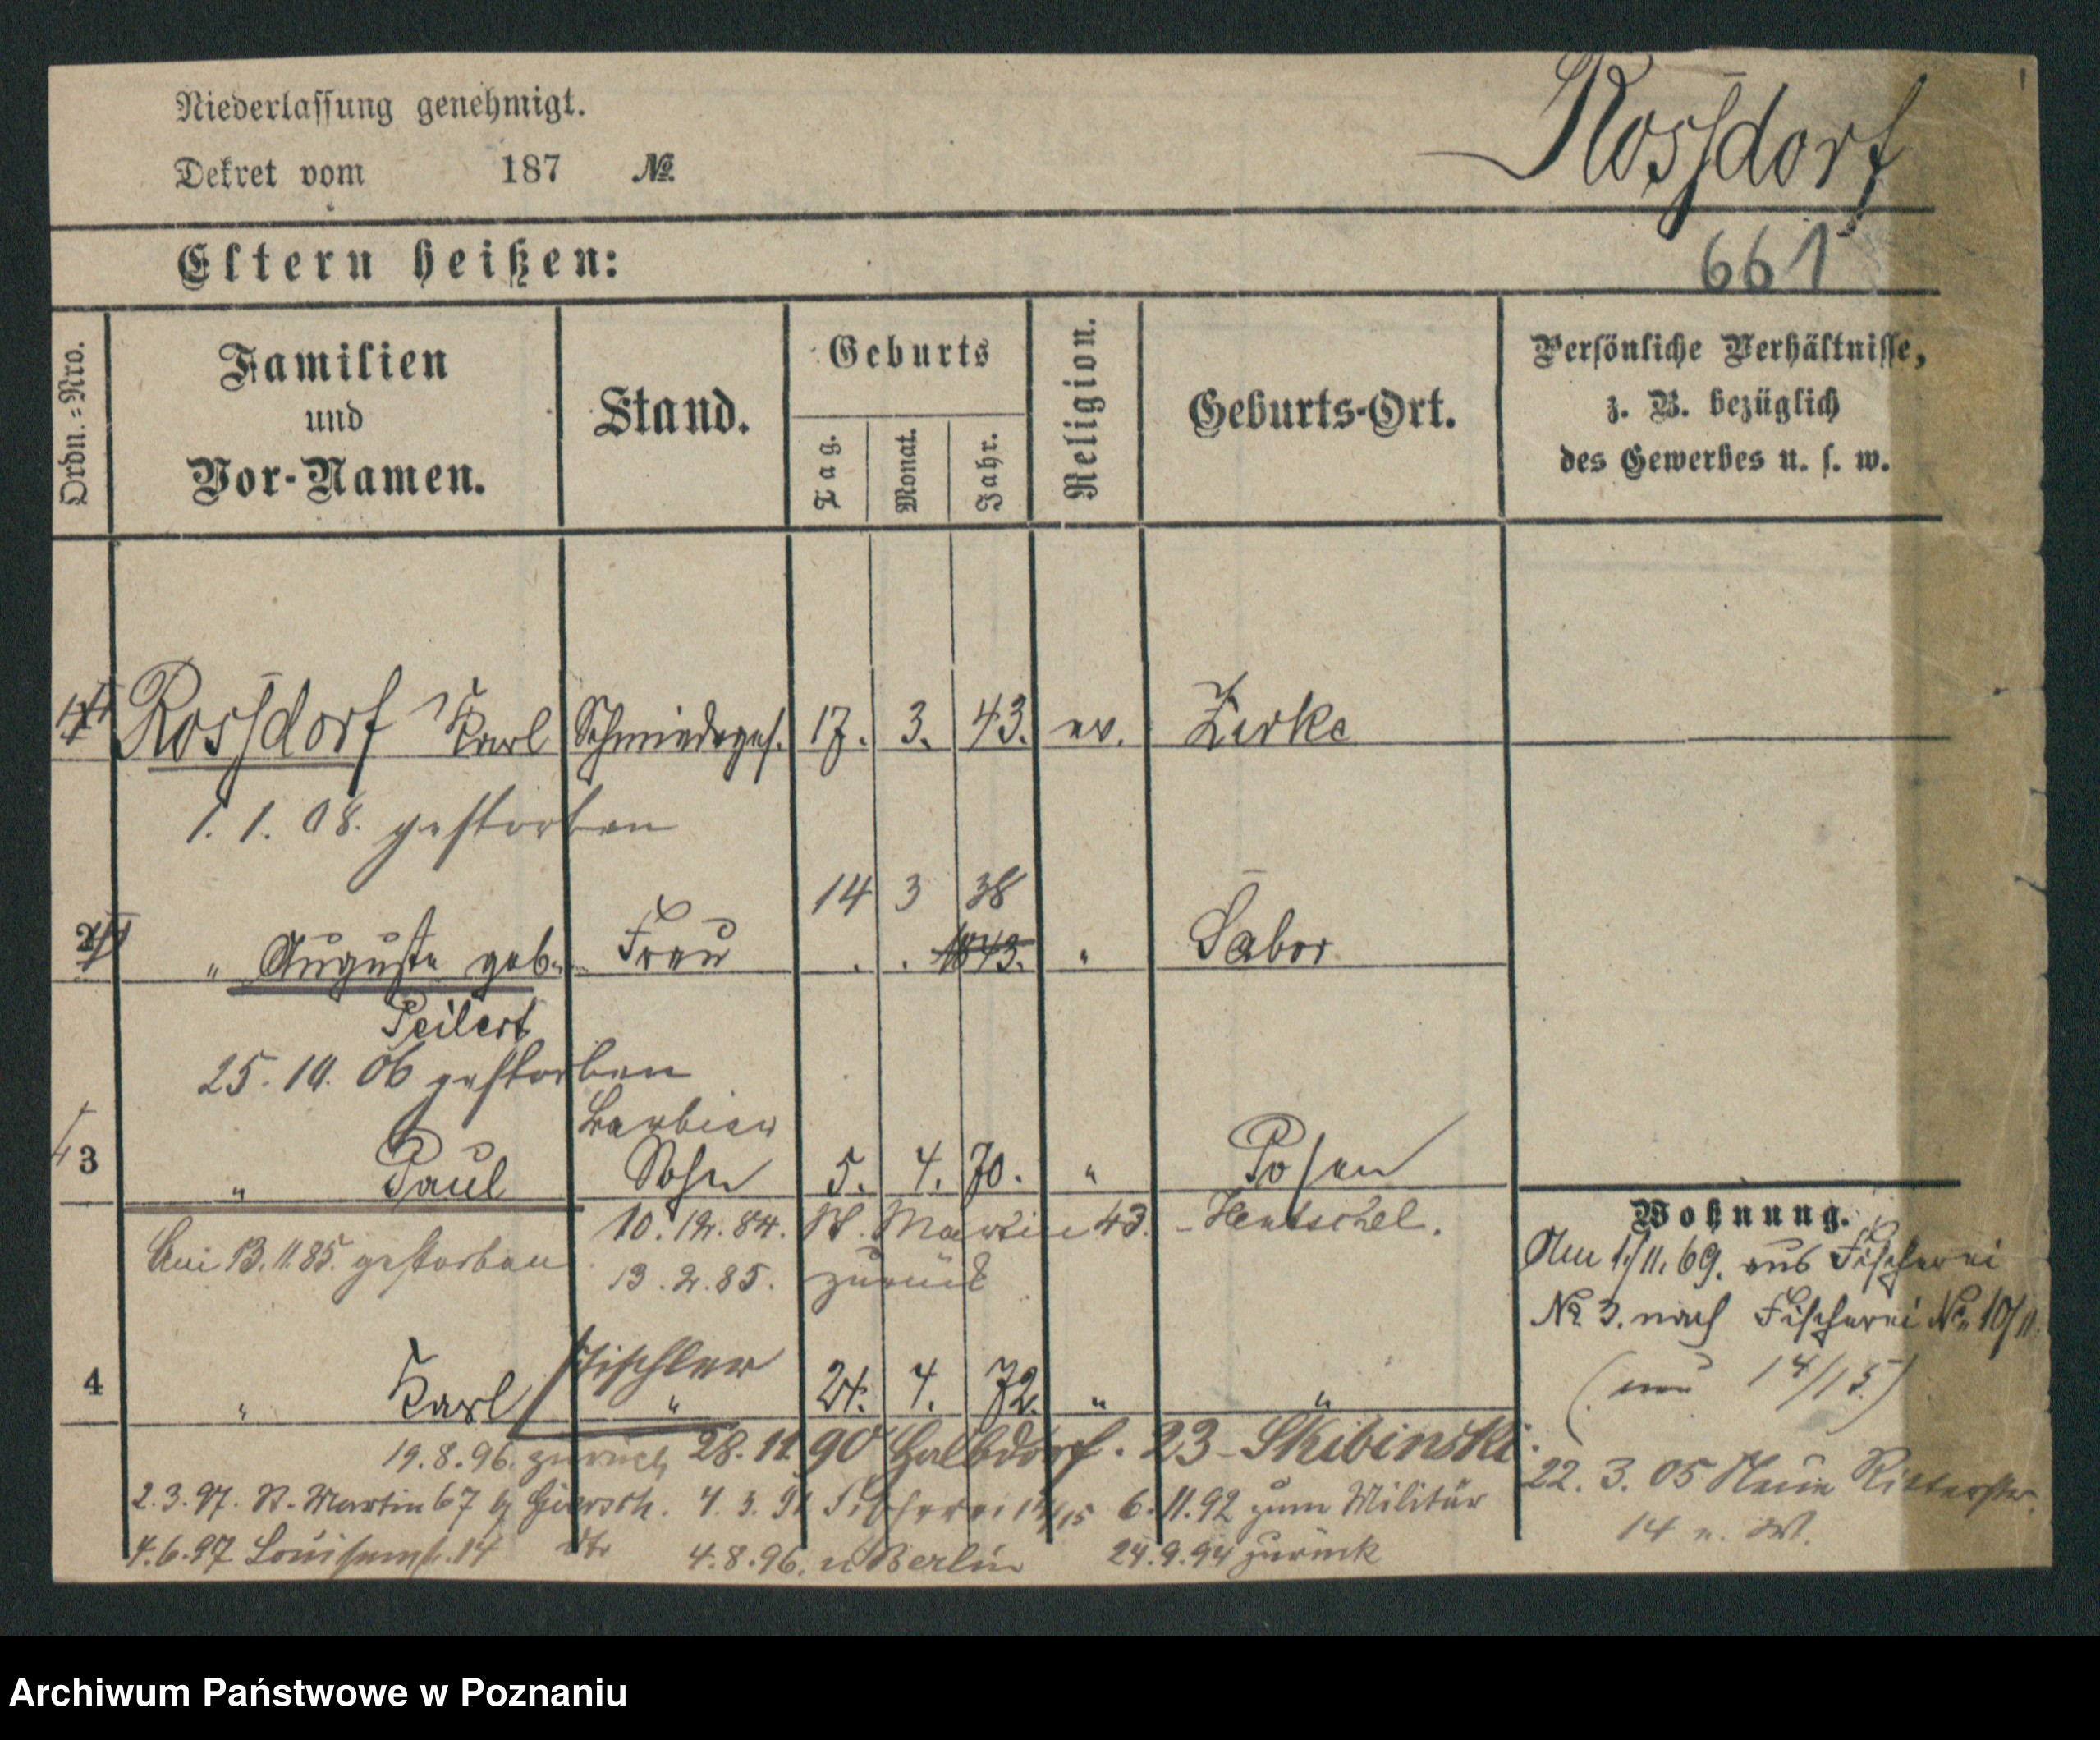 Niederlassung genehmigt.
Dekret vom 187 №
Rossdorf
661
Eltern heißen:
Ordn.-Nro.
Familien und Vor-Namen.
Stand.
Geburts
Tag. Monat. Jahr.
Religion.
Geburts-Ort.
Persönliche Verhältnisse,
z. B. bezüglich
des Gewerbes u. s. w.
1 Rossdorf Karl Schmiedeges. 17. 3. 43. ev. Zirke
1. 1. 08. gestorben
14 3 38
2 " Auguste geb. Frau . . 1843. " Sabor
Peilert
25. 10. 06 gestorben
Barbier
3 " Paul Sohn 5. 4. 70. " Posen
10. 12. 84. St. Martin 43. - Hentschel.
Am 13. 11. 85. gestorben
13. 2. 85. zurück
Tischler
4 " Karl " 24. 4. 72. " "
19. 8. 96. zurück 28. 11. 90 Halbdorf. 23 - Skibinski.
2. 3. 97. St. Martin 67 4. 3. 91 Fischerei 14/15 6. 11. 92 zum Militär
4. 6. 97. Louisenstr. 14 4. 8. 96. n Berlin 24. 9. 94 zurück
Wohnung.
Am 1./11. 69. aus Fischerei
№ 3. nach Fischerei № 10/11.
(neu 14/15.)
22. 3. 05 Neue Ritterstr.
14
Archiwum Państwowe w Poznaniu